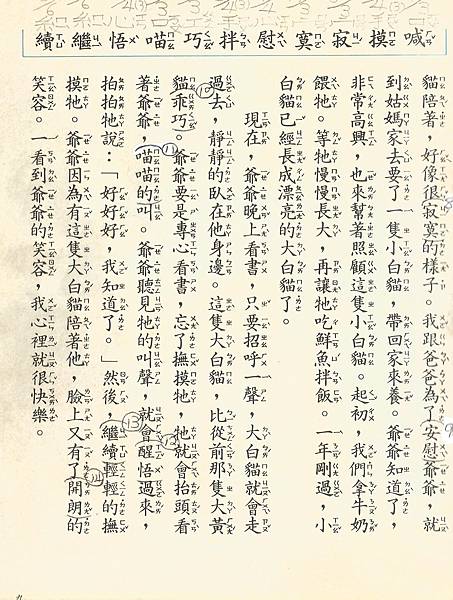 喊摸寂寞慰拌巧喵悟繼續
貓陪著，好像很寂寞的樣子。我跟爸爸為了安慰爺爺，就
到姑媽家去要了一隻小白貓，帶回家來養。爺爺知道了，
非常高興，也來幫著照顧這隻小白貓。起初，我們拿牛奶
餵牠。等牠慢慢長大，再讓牠吃鮮魚拌飯。一年剛過，小
白貓已經長成漂亮的大白貓了。
現在，爺爺晚上看書，只要招呼一聲，大白貓就會走
過去，靜靜的臥在他身邊。這隻大白貓，比從前那隻大黃
貓乖巧。爺爺要是專心看書，忘了撫摸牠，牠就會抬頭看
著爺爺，喵喵的叫。爺爺聽見牠的叫聲，就會醒悟過來，
拍拍牠說：「好好好，我知道了。」然後，繼續輕輕的撫
摸牠。爺爺因為有這隻大白貓陪著他，臉上又有了開朗的
笑容。一看到爺爺的笑容，我心裡就很快樂。